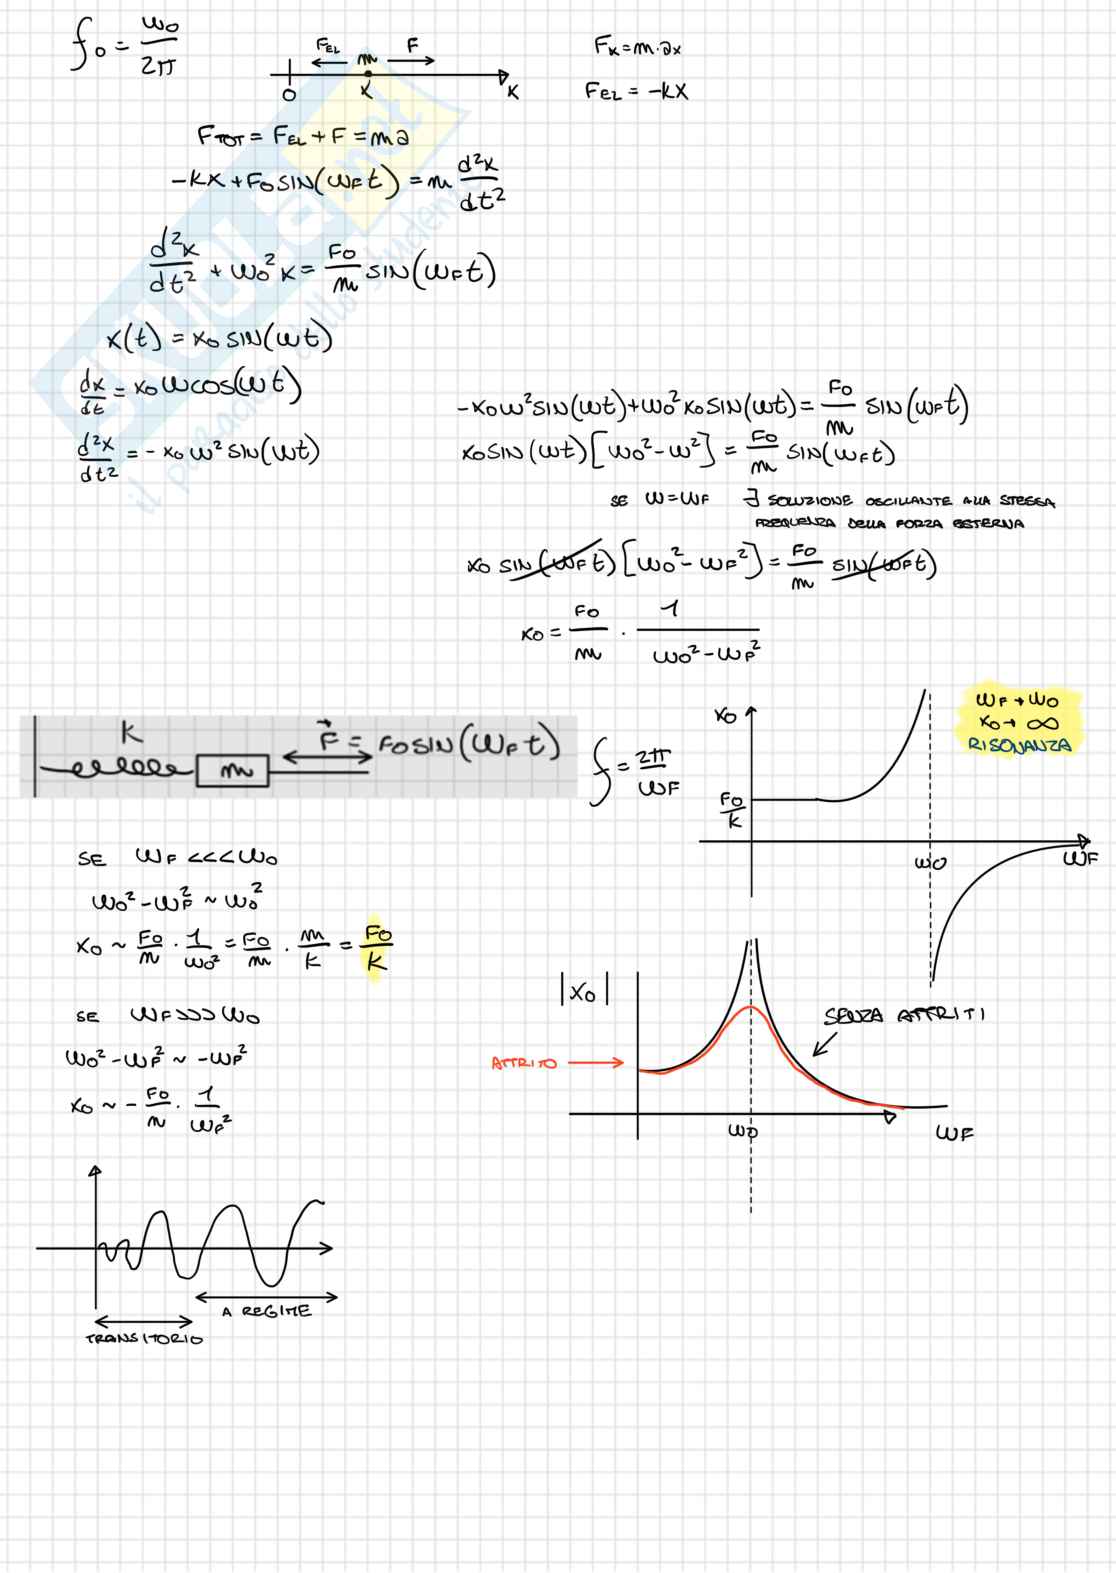 f₀ = ω₀/2π
F_EL F
m
O X X
Fx = m·ax
F_EL = -KX
F_TOT = F_EL + F = ma
-KX + F₀ SIN(ω_F t) = m d²x/dt²
d²x/dt² + ω₀² x = F₀/m SIN(ω_F t)
x(t) = x₀ SIN(ωt)
dx/dt = x₀ ω cos(ωt)
d²x/dt² = - x₀ ω² SIN(ωt)
-x₀ω² SIN(ωt) + ω₀² x₀ SIN(ωt) = F₀/m SIN(ω_F t)
x₀ SIN(ωt) [ω₀² - ω²] = F₀/m SIN(ω_F t)
SE ω = ω_F ∃ SOLUZIONE OSCILLANTE ALLA STESSA
FREQUENZA DELLA FORZA ESTERNA
x₀ SIN(ω_F t) [ω₀² - ω_F²] = F₀/m SIN(ω_F t)
x₀ = F₀/m · 1/(ω₀² - ω_F²)
K
m
F⃗ = F₀ SIN(ω_F t)
f = 2π/ω_F
x₀
F₀/K
ω₀
ω_F
ω_F → ω₀
x₀ → ∞
RISONANZA
SE ω_F <<< ω₀
ω₀² - ω_F² ~ ω₀²
x₀ ~ F₀/m · 1/ω₀² = F₀/m · m/K = F₀/K
SE ω_F >>> ω₀
ω₀² - ω_F² ~ -ω_F²
x₀ ~ - F₀/m · 1/ω_F²
|x₀|
SENZA ATTRITI
ATTRITO
ω₀
ω_F
A REGIME
TRANSITORIO
skuola.net
il paradiso dello studente